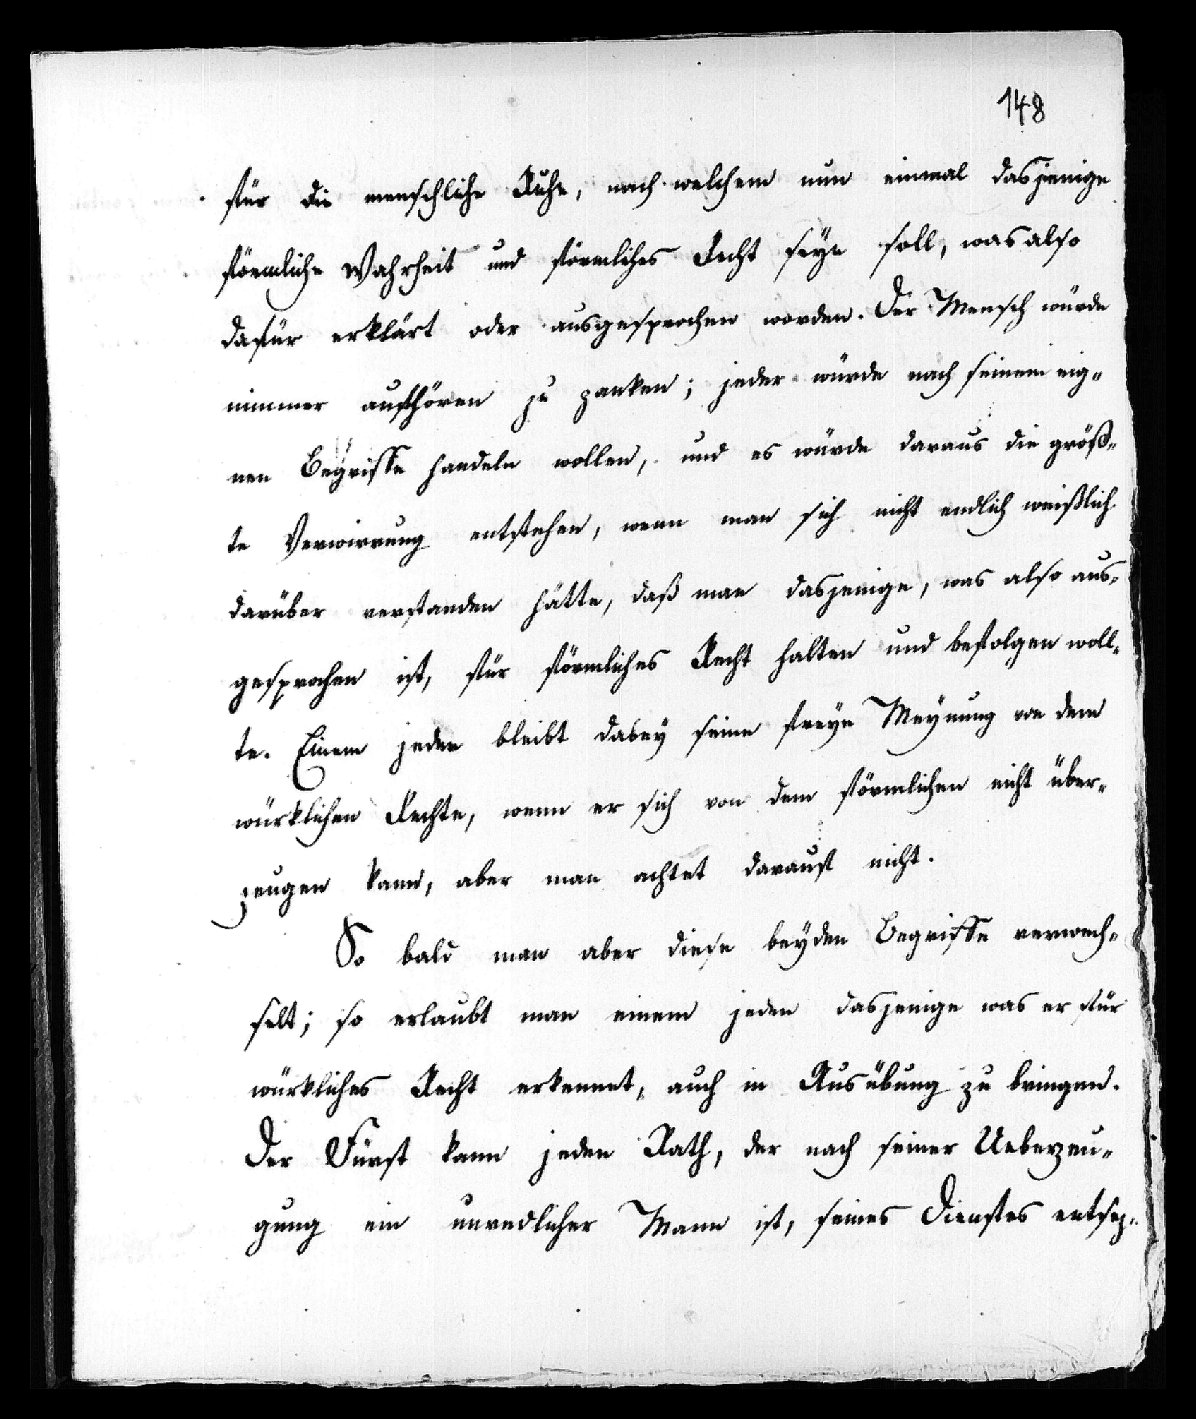 148
für die menschliche Ruhe, nach welchem nun einmal dasjenige
förmliche Wahrheit und förmliches Recht seyn soll, was also
dafür erklärt oder ausgesprochen worden. Der Mensch würde
nimmer aufhören zu zanken; jeder würde nach seinem eig-
nen Begriffe handeln wollen, und es würde daraus die größ-
te Verwirrung entstehen, wenn man sich nicht endlich weißlich
darüber verstanden hätte, daß man dasjenige, was also aus-
gesprochen ist, für förmliches Recht halten und befolgen woll-
te. Einem jeden bleibt dabey seine freye Meynung von dem
würklichen Rechte, wenn er sich von dem förmlichen nicht über-
zeugen kann, aber man achtet darauf nicht.
So bald man aber diese beyden Begriffe verwech-
selt; so erlaubt man einem jeden dasjenige was er für
würkliches Recht erkennet, auch in Ausübung zu bringen.
Der Fürst kann jeden Rath, der nach seiner Ueberzeu-
gung ein unredlicher Mann ist, seines Dienstes entsez-